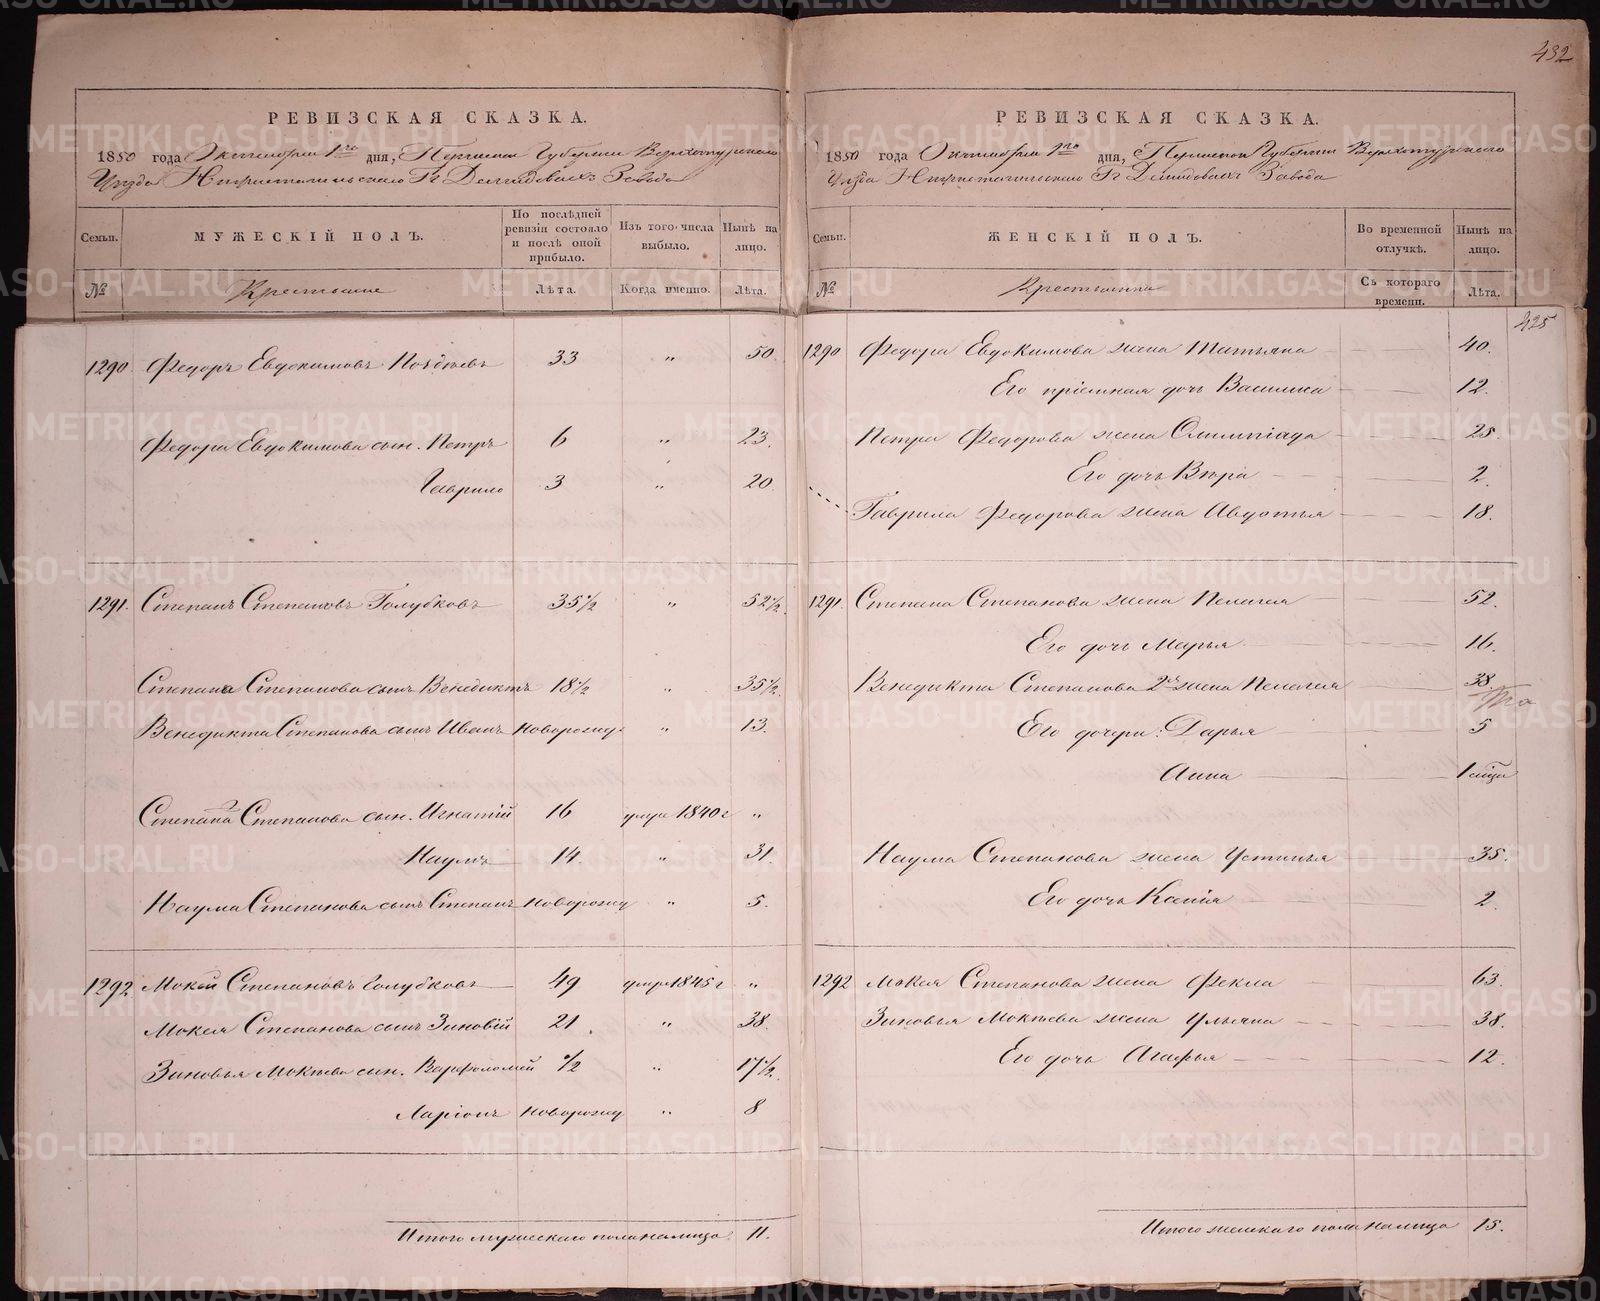 432
РЕВИЗСКАЯ СКАЗКА.
1850 года Октября 1го дня, Пермской Губернии Верхотурского
Уезда Н Гг Демидовыхъ Завода
Семьи. МУЖЕСКІЙ ПОЛЪ. По послѣдней ревизіи состояло и послѣ оной прибыло. Изъ того числа выбыло. Нынѣ на лицо.
№ Крестьяне Лѣта. Когда именно. Лѣта.
1290 Федоръ Евдокимовъ 33 „ 50
Федора Евдокимова сын. Петръ 6 „ 23.
Гаврило 3 „ 20
1291. Степанъ Степановъ Голубковъ 35 1/2 „ 52 1/2
Степана Степанова сынъ Венедиктъ 18 1/2 „ 35 1/2
Венедикта Степанова сынъ Иванъ новорожд. „ 13.
Степана 2 Степанова сын. Игнатій 16 умре 1840 г „
Наумъ 14 „ 31.
Наума Степанова сынъ Степанъ новорожд „ 5.
1292 Мокей Степановъ Голубковъ 49 умре 1845 г „
Мокея Степанова сынъ Зиновій 21. „ 38.
Зиновья Мокѣева сын. Варфоломей 1/2 „ 17 1/2
Ларіонъ новорожд „ 8
Итого мужескаго пола налицо 11.
РЕВИЗСКАЯ СКАЗКА.
1850 года Октября 1го дня, Пермской Губерніи Верхотурскаго
Уезда Н Гг Демидовыхъ Завода
Семьи. ЖЕНСКІЙ ПОЛЪ. Во временной отлучкѣ. Нынѣ на лицо.
№ Крестьянки Съ котораго времени. Лѣта.
425
1290 Федора Евдокимова жена Татьяна 40.
Его пріемная дочь Василиса 12.
Петра Федорова жена Олимпіада 25.
Его дочь Вѣра 2.
Гаврила Федорова жена Авдотья 18.
1291. Степана Степанова жена Пелагея 52.
Его дочь Марья 16.
Венедикта Степанова 2я жена Пелагея 38.
Его дочери: Дарья 5
Анна 1
Наума Степанова жена Устинья 35.
Его дочь Ксенія 2.
1292 Мокея Степанова жена Фекла 63.
Зиновья Мокѣева жена Ульяна 38.
Его дочь Агафья 12.
Итого женскаго пола налицо 15.
METRIKI.GASO-URAL.RU